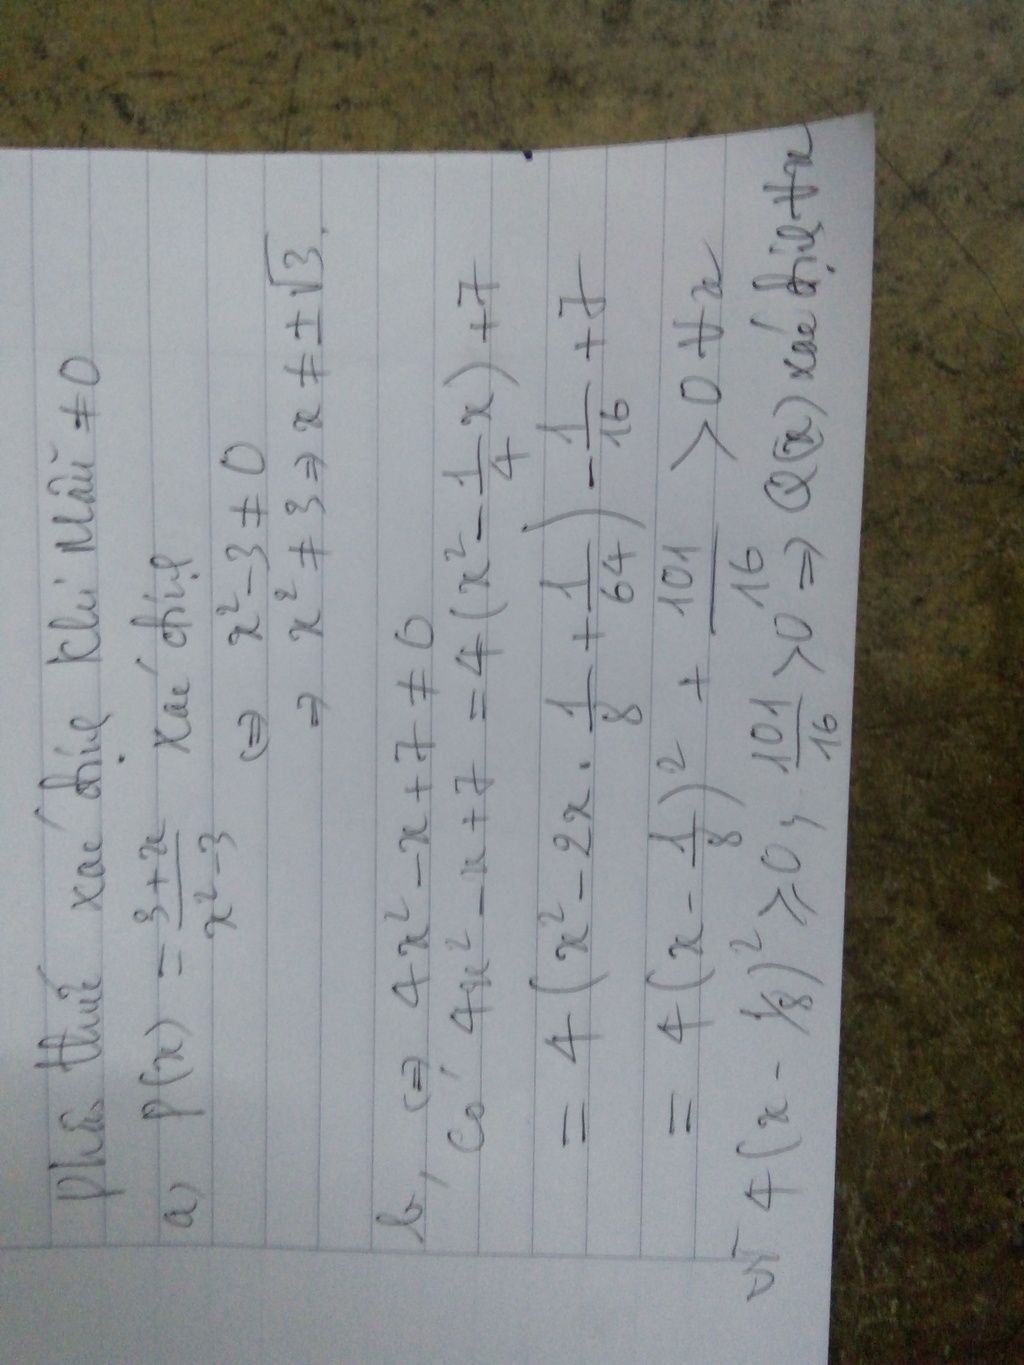 Phân thức xác định khi Mẫu ≠ 0
a) P(x) = \frac{3+x}{x²-3} xác định
⇔ x²-3 ≠ 0
⇒ x² ≠ 3 ⇒ x ≠ ±√3.
b, ⇔ 4x² - x + 7 ≠ 0
Có 4x² - x + 7 = 4(x² - \frac{1}{4}x) + 7
= 4(x² - 2x . \frac{1}{8} + \frac{1}{64}) - \frac{1}{16} + 7
= 4(x - \frac{1}{8})² + \frac{101}{16} > 0 ∀x
vì 4(x - 1/8)² ≥ 0, \frac{101}{16} > 0 ⇒ Q(x) xác định ∀x